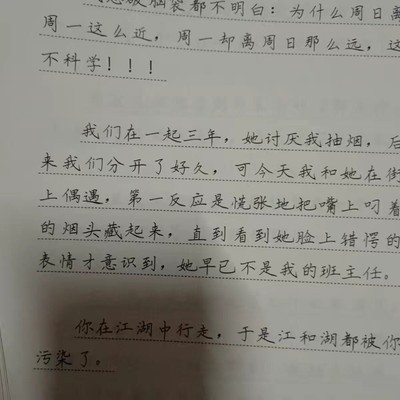 破脑袋都不明白：为什么周日离
周一这么近，周一却离周日那么远，这
不科学！！！
我们在一起三年，她讨厌我抽烟，后
来我们分开了好久，可今天我和她在街
上偶遇，第一反应是慌张地把嘴上叼着
的烟头藏起来，直到看到她脸上错愕的
表情才意识到，她早已不是我的班主任。
你在江湖中行走，于是江和湖都被你
污染了。